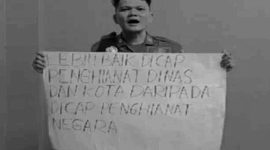 LEBIH BAIK DICAP
PENGHIANAT DINAS
DAN KOTA DARIPADA
DICAP PENGHIANAT
NEGARA